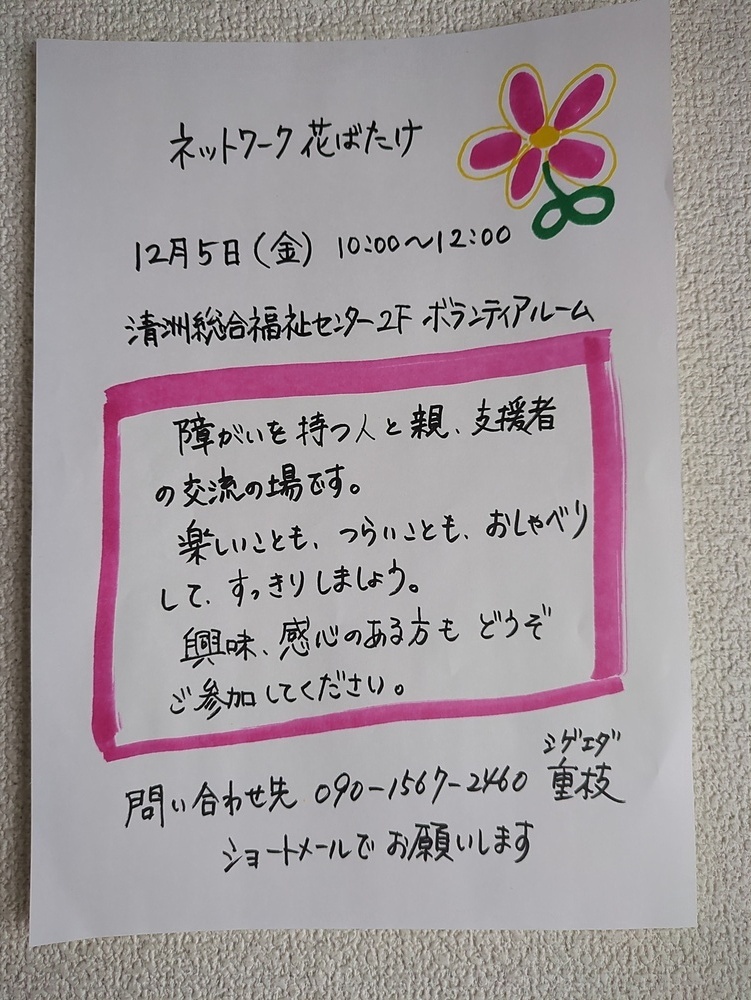 ネットワーク 花ばたけ
12月5日(金) 10:00〜12:00
清洲総合福祉センター2F ボランティアルーム
障がいを持つ人と親、支援者
の交流の場です。
楽しいことも、つらいことも、おしゃべり
して、すっきりしましょう。
興味、感心のある方も どうぞ
ご参加してください。
シゲエダ
問い合わせ先 090-1567-2460 重枝
ショートメールで お願いします